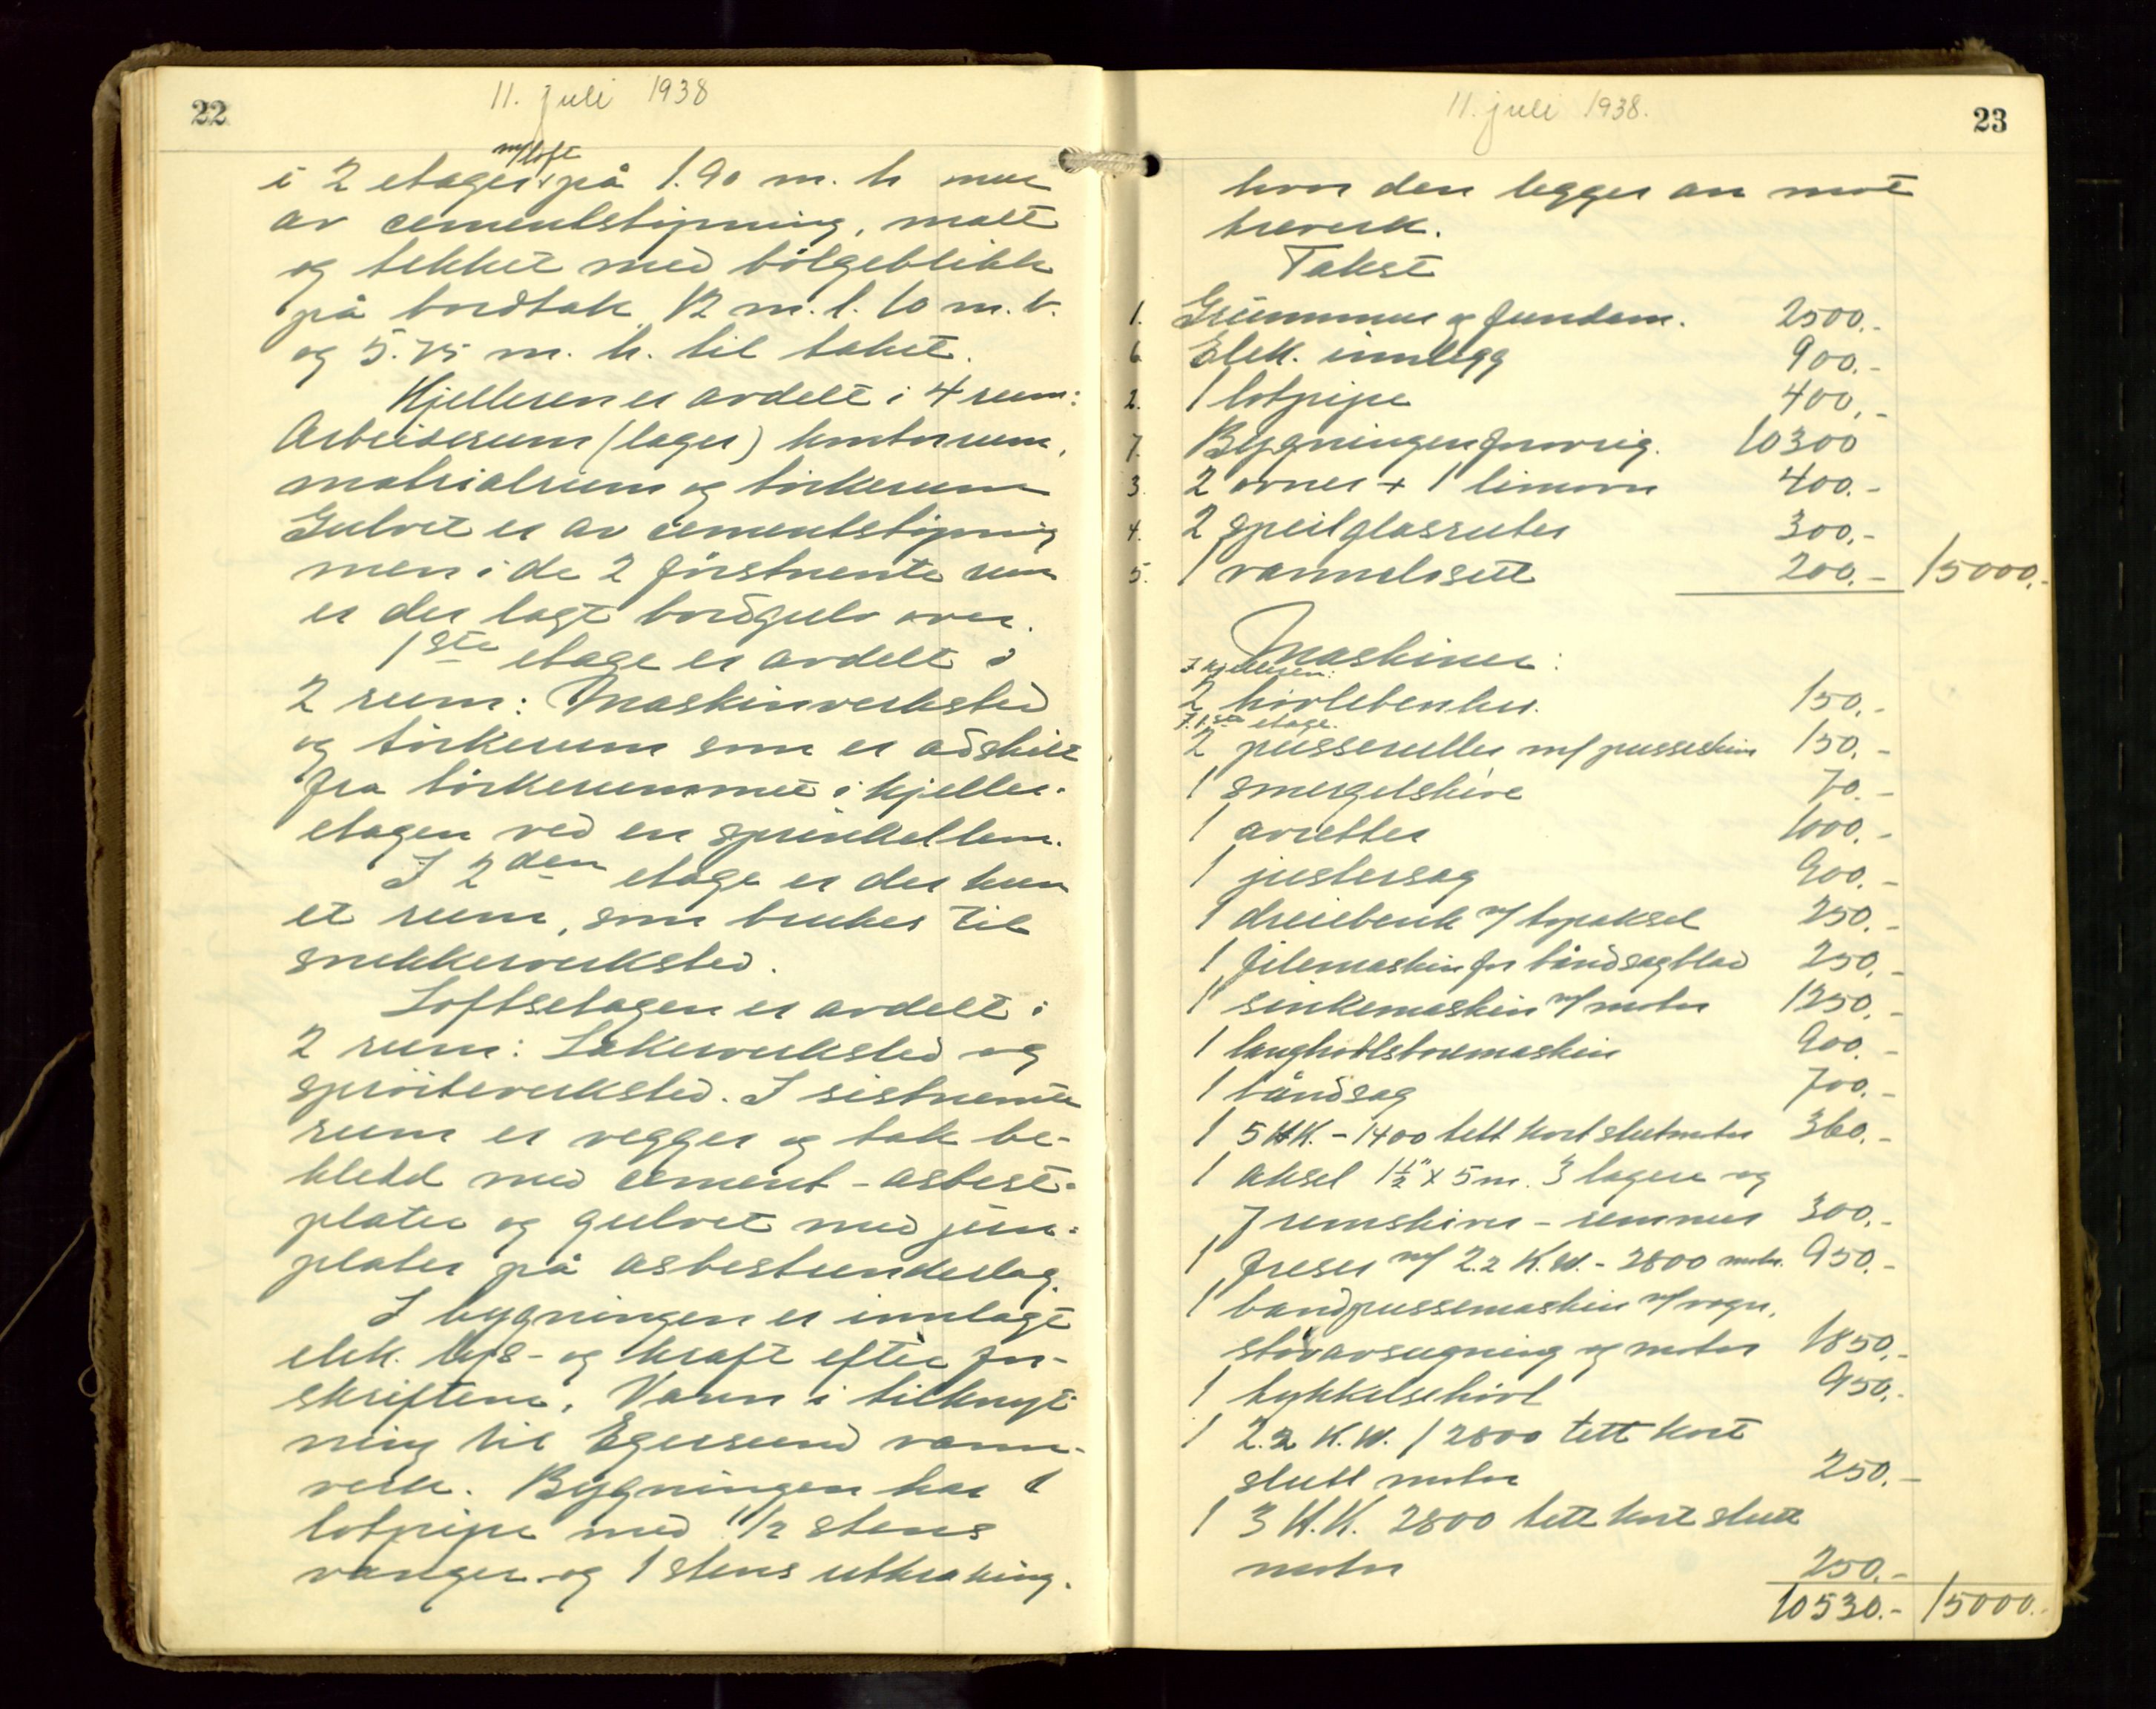 22
11. juli 1938
m/loft
i 2 etager på 1.90 m. h mur
av cementstøpning, malt
og tekket med bølgeblikk
på bordtak 12 m. l. 10 m. b.
og 5.75 m. h. til taket.
Kjelleren er avdelt i 4 rum:
Arbeidsrum (lager) kontorrum,
matrialrum og tørkerum
Gulvet er av cementstøpning
men i de 2 førstnevnte rum
er der lagt bordgulv over.
1ste etage er avdelt i
2 rum: Maskinverksted
og tørkerum som er adskilt
fra tørkerummet i kjeller-
etagen ved en sprinkellem.
I 2den etage er der kun
et rum, som brukes til
snekkerverksted.
Loftsetagen er avdelt i
2 rum: Lakerverksted og
sprøiteverksted. I sistnevnte
rum er vegger og tak be-
kledd med cement-asbest-
plater og gulvet med jern-
plater på asbestunderlag.
I bygningen er innlagt
elek. lys- og kraft efter for-
skriftene. Vann i tilknyt-
ning til Egersund vann-
verk. Bygningen har 1
lotpipe med 1/2 stens
vanger og 1 stens utkraking.
11. juli 1938.
23
hvor den legger an mot
treverk.
Takst
1. Grunnmur og fundam. 2500.-
6. Elek. innlegg 900.-
2. 1 lotpipe 400.-
7. Bygningen forøvrig. 10300
3. 2 ovner + 1 limovn 400.-
4. 2 speilglassruter 300.-
5. 1 vannklosett 200.- 15000.-
Maskiner:
I kjelleren:
2 høvlebenker. 150.-
I 1ste etage.
2 pusseruller m/ pusseskive 150.-
1 smergelskive 70.-
1 avretter 1000.-
1 justersag 900.-
1 dreiebenk m/ topaksel 250.-
1 filemaskin for båndsagblad 250.-
1 sinkemaskin m/ motor 1250.-
1 langhullsboremaskin 900.-
1 båndsag 700.-
1 5 H.K. - 1400 tett kortslutmotor 360.-
1 aksel 1 1/2" x 5 m. 3 lagere og
7 remskiver - remmer 300.-
1 freser m/ 2.2 K.W. - 2800 motor. 950.-
1 bandpussemaskin m/ vogn,
støvavsugning og motor 1850.-
1 tykkelsehøvl 950.-
1 2.2 K.W. / 2800 tett kort
slutt motor 250.-
1 3 H.K. 2800 tett kort slutt
motor 250.-
10530.- 15000.-